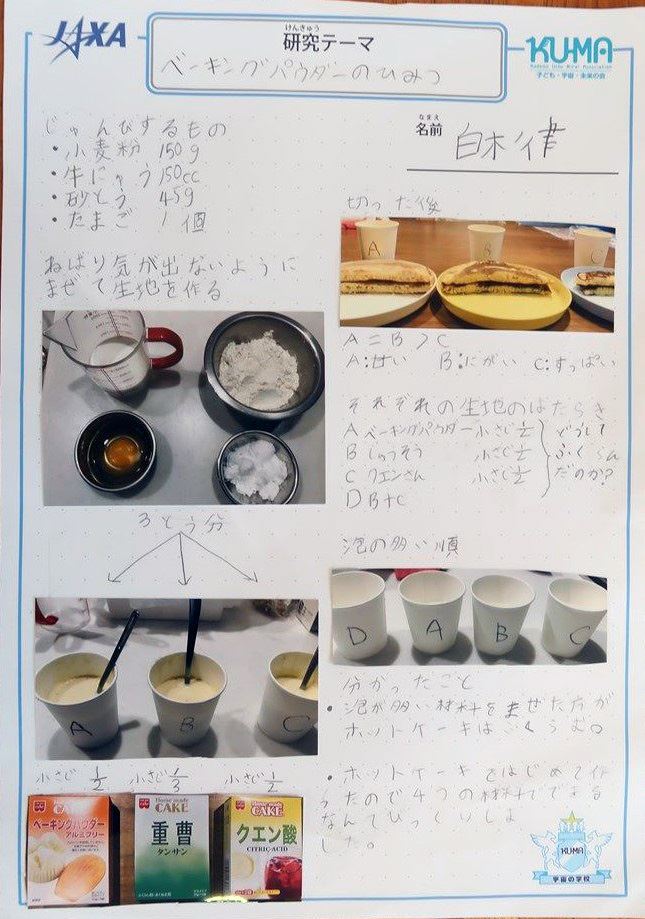 JAXA
けんきゅう
研究テーマ
ベーキングパウダーのひみつ
KU-MA
子ども・宇宙・未来の会
なまえ
名前
白木律
じゅんびするもの
・小麦粉 150g
・牛にゅう 150cc
・砂とう 45g
・たまご 1個
ねばり気が出ないように
まぜて生地を作る
3とう分
A
B
C
小さじ 1/2
小さじ 1/3
小さじ 1/2
ベーキングパウダー
アルミフリー
Home made
CAKE
重曹
タンサン
Home made
CAKE
クエン酸
CITRIC ACID
切った後
A
B
C
A=B>C
A:甘い B:にがい C:すっぱい
それぞれの生地のはたらき
A ベーキングパウダー 小さじ1/2
B じゅうそう 小さじ1/2
C クエンさん 小さじ1/2
D B+C
どうして
ふくらん
だのか?
泡の多い順
D
A
B
C
分かったこと
・泡が多い材料をまぜた方が
ホットケーキはふくらむ。
・ホットケーキをはじめて作
ったので4つの材料でできる
なんてびっくりしま
した。
KUMA
宇宙の学校